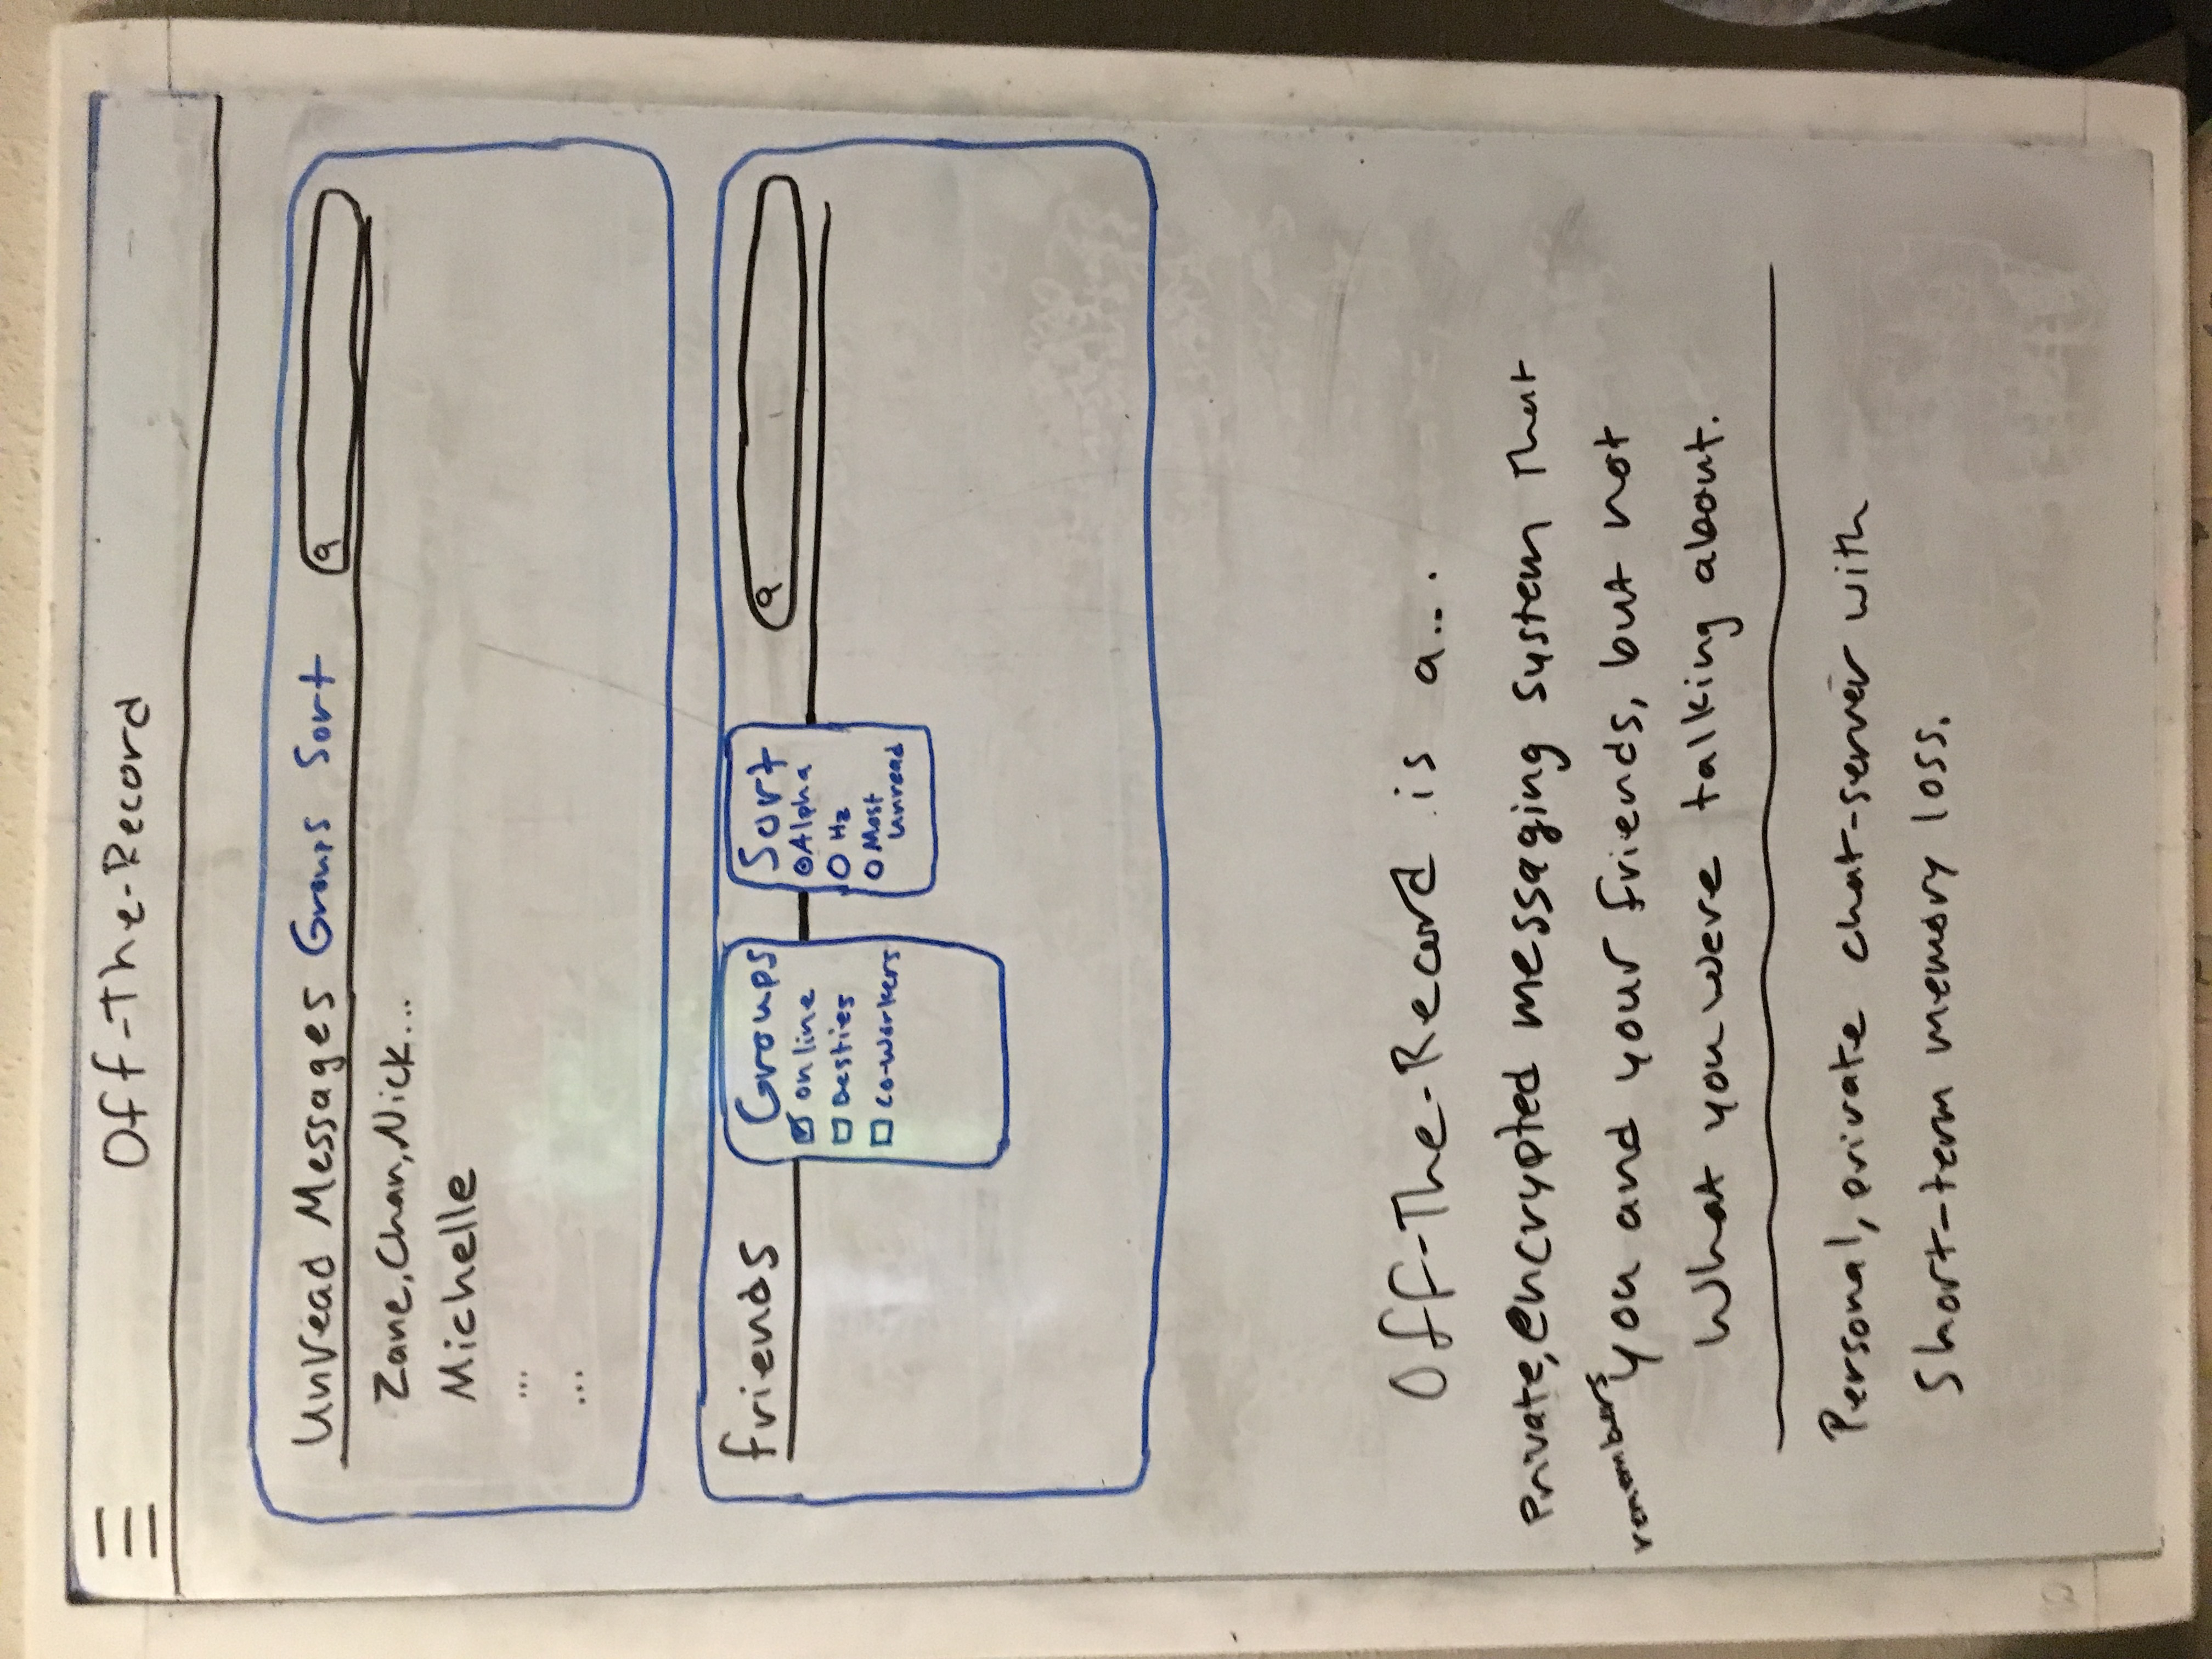 Off-The-Record
Unread Messages Groups Sort
Zane, Chan, Nick...
Michelle
...
...
friends Groups Sort
online Alpha
Besties Hz
Co-workers Most
unread
Off-The-Record is a...
Private, encrypted messaging system that
remembers you and your friends, but not
what you were talking about.
Personal, private chat-server with
Short-term memory loss.